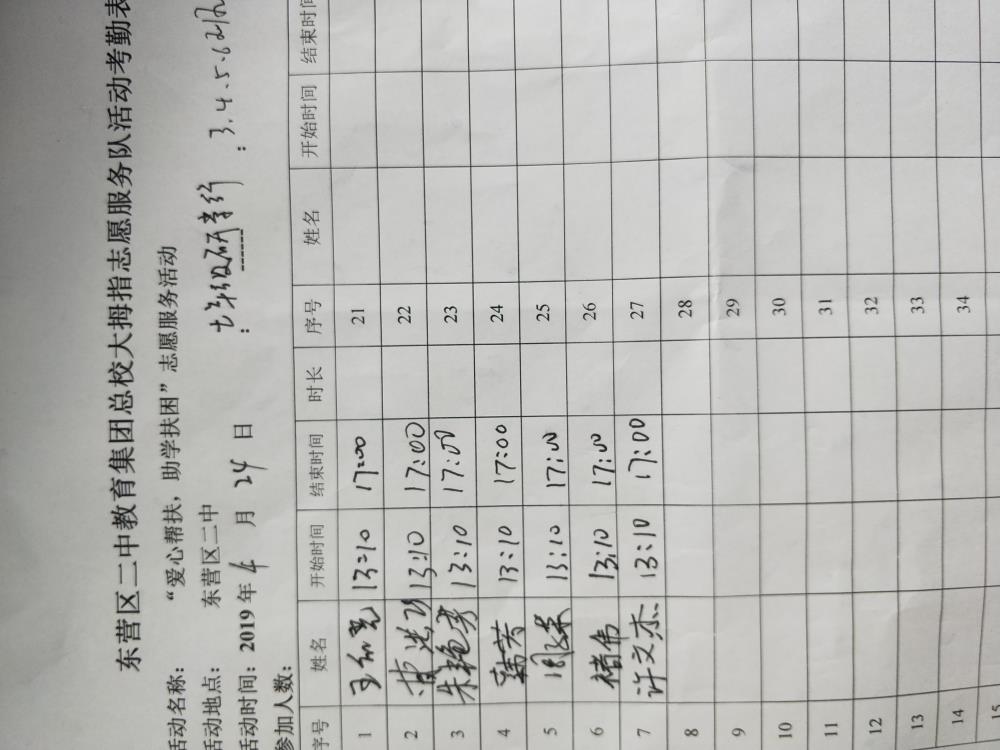 东营区二中教育集团总校大拇指志愿服务队活动考勤表
活动名称： “爱心帮扶，助学扶困”志愿服务活动
活动地点： 东营区二中 ：七年级研学行 ：3.4.5.6
活动时间：2019年4月24日
参加人数：
序号 姓名 开始时间 结束时间 时长 序号 姓名 开始时间 结束时间
1 13:10 17:00 21
2 13:10 17:00 22
3 朱艳芳 13:10 17:00 23
4 韩芳 13:10 17:00 24
5 13:10 17:00 25
6 褚伟 13:10 17:00 26
7 许文杰 13:10 17:00 27
8 28
9 29
10 30
11 31
12 32
13 33
14 34
15